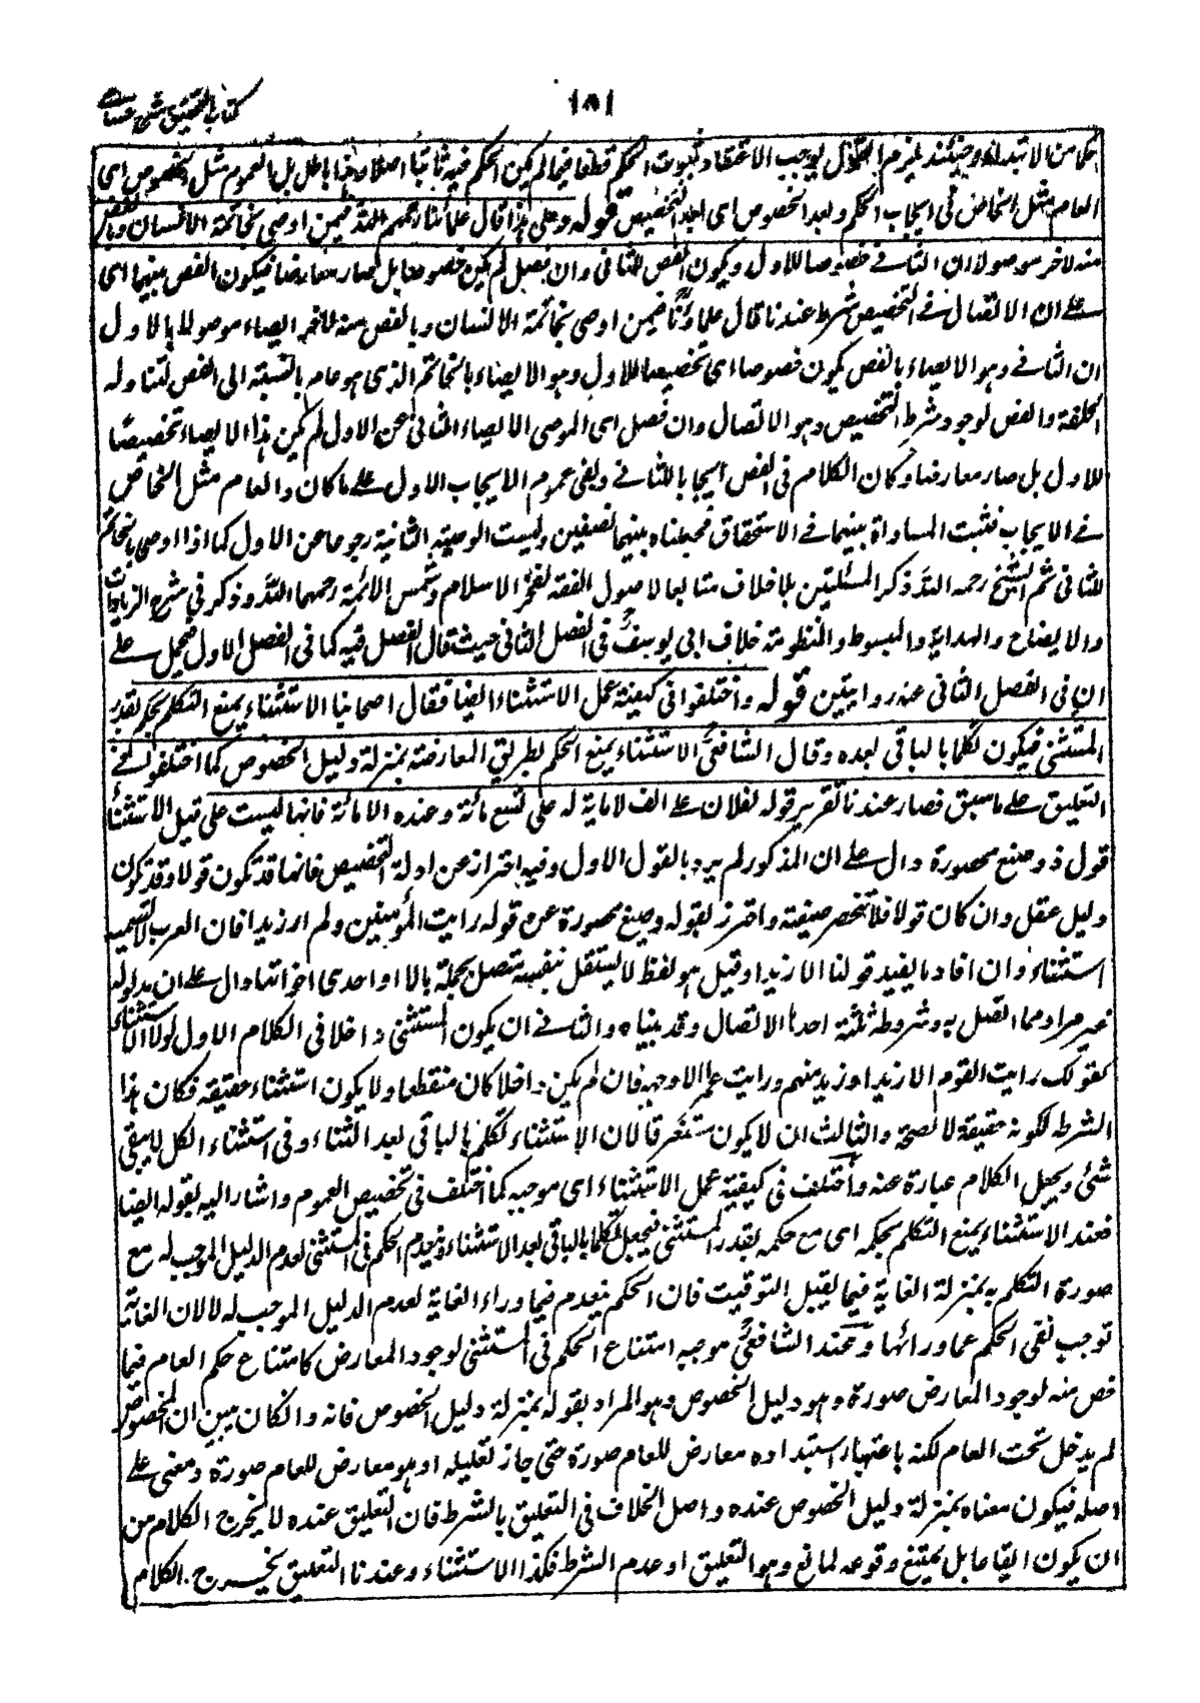 ١٥١
كتاب التحقيق شرح حسامى
العام مثل الخاص فى ايجاب الحكم وبعد الخصوص اى بعد التخصيص قوله وعلى هذا قال علمائنا رحمهم الله فيمن اوصى بخاتمه لانسان وبالفص
منه لاخر موصولا ان الثانى خصوصا للاول ويكون الفص للثانى وان فصل لم يكن خصوصا بل صار معارضا فيكون الفص بينهما اى
على ان الاتصال فى التخصيص شرط عندنا قال علماؤنا فيمن اوصى بخاتمه لانسان وبالفص منه لاخر ايصاء موصولا بالاول
ان الثانى وهو الايصاء بالفص يكون خصوصا اى تخصيصا للاول وهو الايصاء بالخاتم الذى هو عام بالنسبة الى الفص لتناوله
الحلقة والفص لوجود شرط التخصيص وهو الاتصال وان فصل اى الموصى الايصاء الثانى عن الاول لم يكن هذا الايصاء تخصيصا
للاول بل صار معارضا وكان الكلام فى الفص ايجابا للثانى وبقى عموم الايجاب الاول على ما كان والعام مثل الخاص
فى الايجاب فتثبت المساواة بينهما فى الاستحقاق فجعلناه بينهما نصفين وليست الوصية الثانية رجوعا عن الاول كما اذا اوصى بالخاتم
للثانى ثم الشيخ رحمه الله ذكر المسئلتين بلا خلاف متابعا لاصول الفقه لفخر الاسلام وشمس الائمة رحمهما الله وذكر فى شرح الزيادات
والايضاح والهداية والمبسوط والمنظومة خلاف ابى يوسف فى الفصل الثانى حيث قال الفصل فيه كما فى الفصل الاول فيحمل على
ان فى الفصل الثانى عنه روايتين قوله واختلفوا فى كيفية عمل الاستثناء ايضا فقال اصحابنا الاستثناء يمنع التكلم بحكمه بقدر
المستثنى فيكون تكلما بالباقى بعده وقال الشافعى الاستثناء يمنع الحكم بطريق المعارضة بمنزلة دليل الخصوص كما اختلفوا فى
التعليق على ما سبق فصار عندنا تقرير قوله لفلان على الف الا ماية له على تسع مائة وعنده الا مائة فانها ليست على قيل الاستثناء
قول ذو صيغ محصورة دال على ان المذكور لم يرد بالقول الاول وفيه احتراز عن ادلة التخصيص فانها قد تكون قولا وقد تكون
دليل عقل وان كان قولا فلا تنحصر صيغته واحترز بقوله وصيغ محصورة عن قوله رايت المؤمنين ولم ار زيدا فان العرب لا تسميه
استثناء وان افاد ما يفيد قولنا الا زيدا وقيل هو لفظ لا يستقل بنفسه متصل بجملة بالا او احدى اخواتها دال على ان مدلوله
غير مراد مما اتصل به وشروطه ثلثة احدها الاتصال وقد بيناه والثانى ان يكون المستثنى داخلا فى الكلام الاول لولا الاستثناء
كقولك رايت القوم الا زيدا وزيد منهم ورايت عمرا الا وجهه فان لم يكن داخلا كان منقطعا ولا يكون استثناء حقيقة فكان هذا
الشرط لكونه حقيقة لا لصحة والثالث ان لا يكون مستغرقا لان الاستثناء تكلم بالباقى بعد الثناء وفى استثناء الكل لا يبقى
شئ ويجعل الكلام عبارة عنه واختلف فى كيفية عمل الاستثناء اى موجبه كما اختلف فى تخصيص العموم واشار اليه بقوله ايضا
فعند الاستثناء يمنع التكلم بحكمه اى مع حكمه بقدر المستثنى فيجعل تكلما بالباقى بعد الاستثناء وينعدم الحكم فى المستثنى لعدم الدليل الموجب له مع
صورة التكلم به بمنزلة الغاية فيما يقبل التوقيت فان الحكم ينعدم فيما وراء الغاية لعدم الدليل الموجب له لا لان الغاية
توجب نفى الحكم عما ورائها وعند الشافعى موجبه امتناع الحكم فى المستثنى لوجود المعارض كامتناع حكم العام فيما
خص منه لوجود المعارض صورة وهو دليل الخصوص وهو المراد بقوله بمنزلة دليل الخصوص فانه وان كان مبين ان المخصوص
لم يدخل تحت العام لكنه باعتبار استبداده معارض للعام صورة حتى جاز تعليله او هو معارض للعام صورة ومعنى على
اصله فيكون معناه بمنزلة دليل الخصوص عنده واصل الخلاف فى التعليق بالشرط فان التعليق عنده لا يخرج الكلام من
ان يكون ايقاعا بل يمتنع وقوعه لمانع وهو التعليق او عدم الشرط فكذا الاستثناء وعندنا التعليق يخرج الكلام